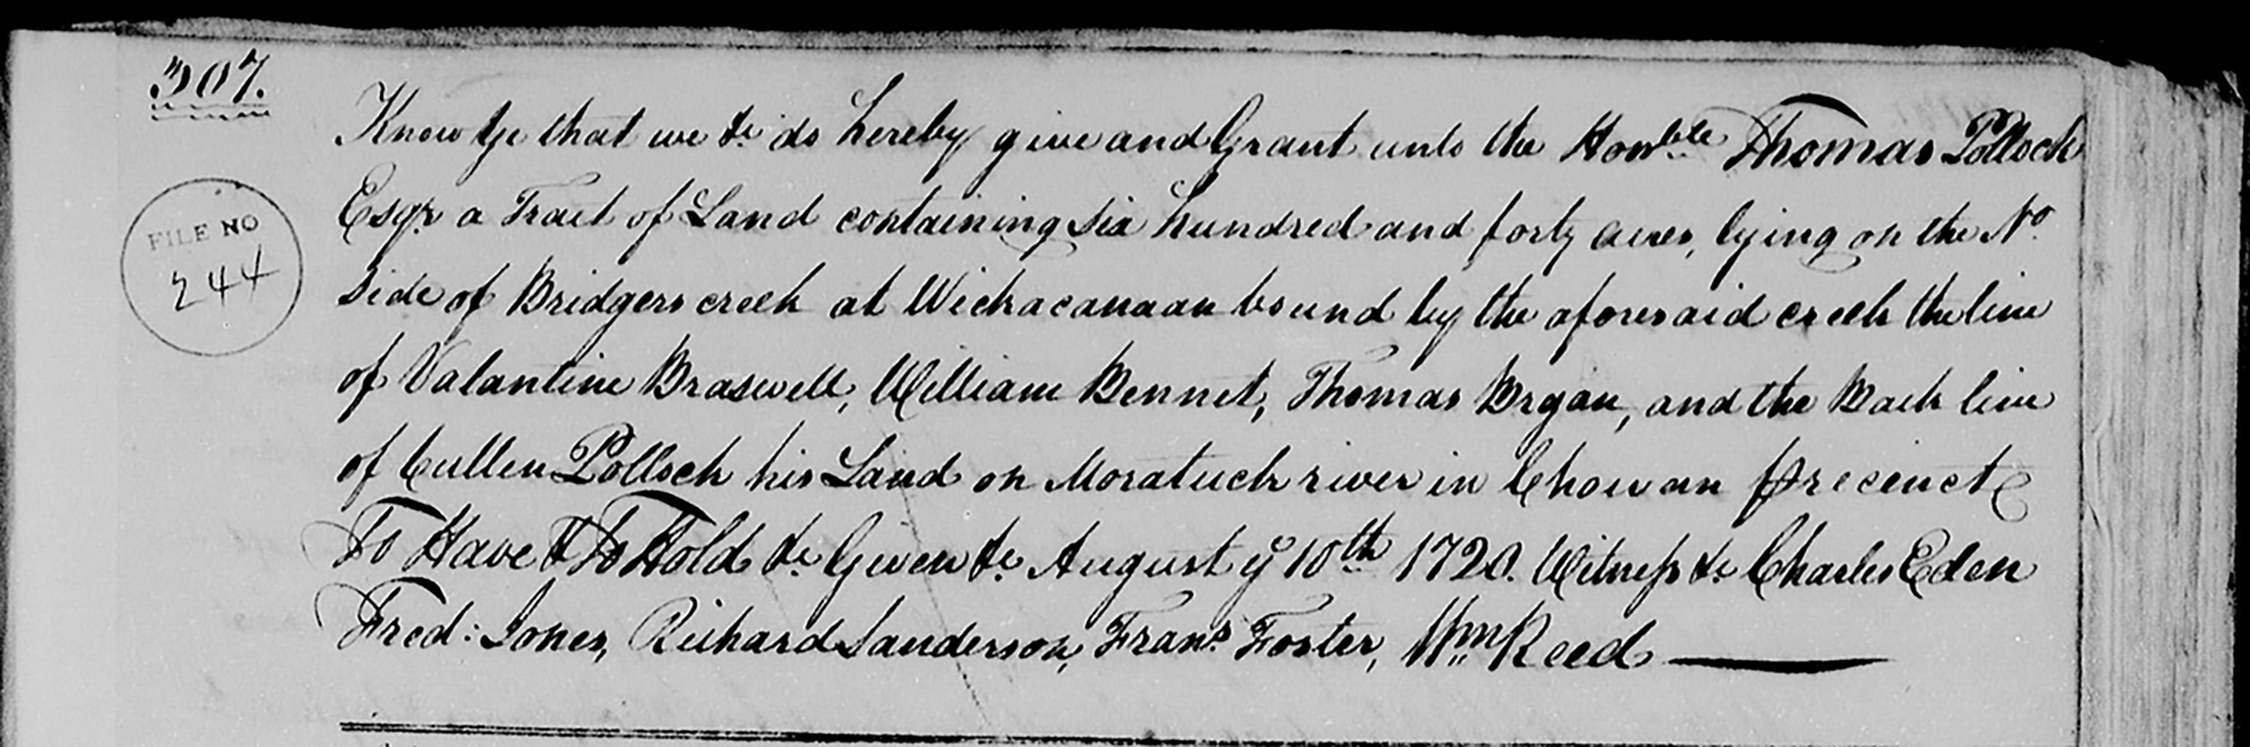 307.
Know Ye that we &c do hereby give and Grant unto the Honble Thomas Pollock
FILE NO
244
Esqr a Tract of Land containing six hundred and forty acres, lying on the No
side of Bridgers creek at Wickacanaan bound by the aforesaid creek the line
of Valantine Braswell, William Bennet, Thomas Bryan, and the Back line
of Cullen Pollock his Land on Moratuck river in Chowan precinct
To Have & To Hold &c Given &c August ye 10th 1720. Witness &c Charles Eden
Fred: Jones, Richard Sanderson, Frans Foster, Wm Reed